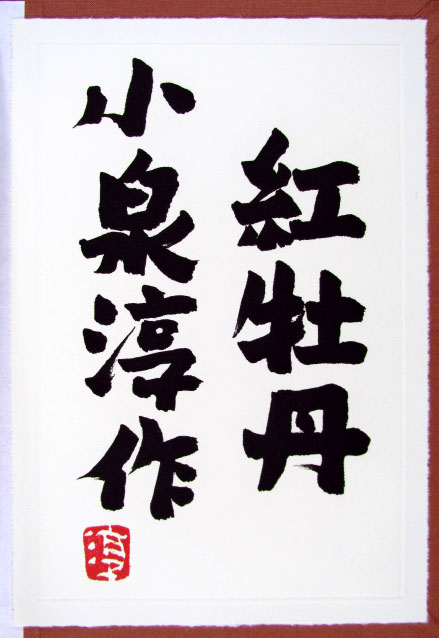 紅牡丹
小泉淳作